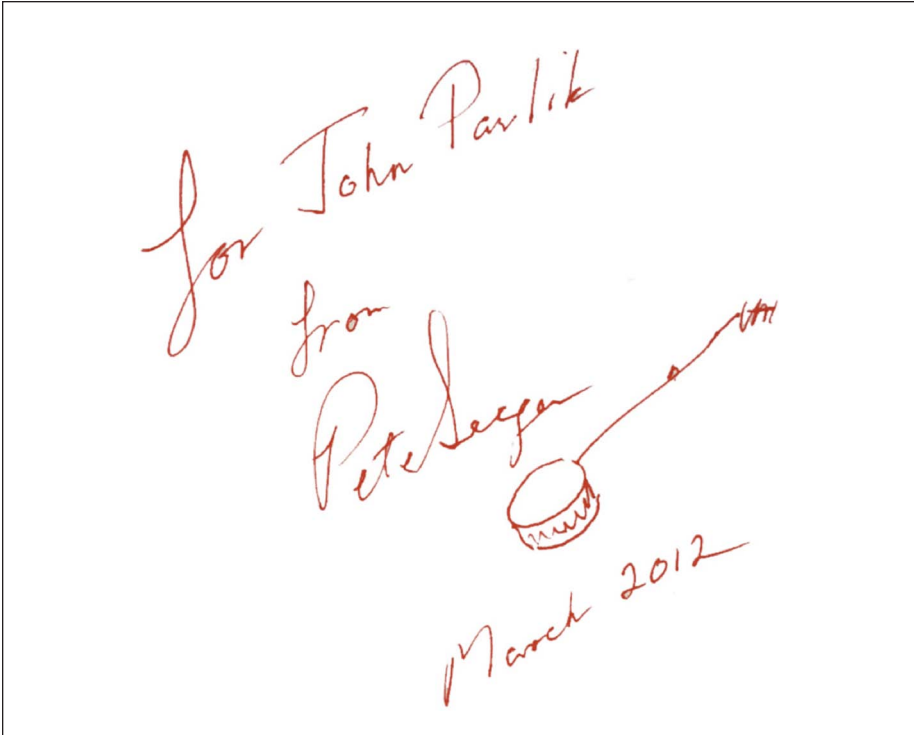 for John Pavlik
from
Pete Seeger
March 2012